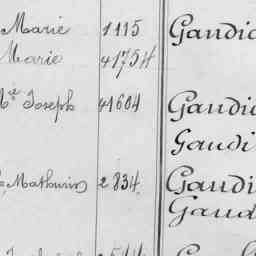 Marie 1115 Gaudic
Marie 41754
Mie Joseph 41604 Gaudic
Gaudi
Mathurin 2834 Gaudi
Gaud